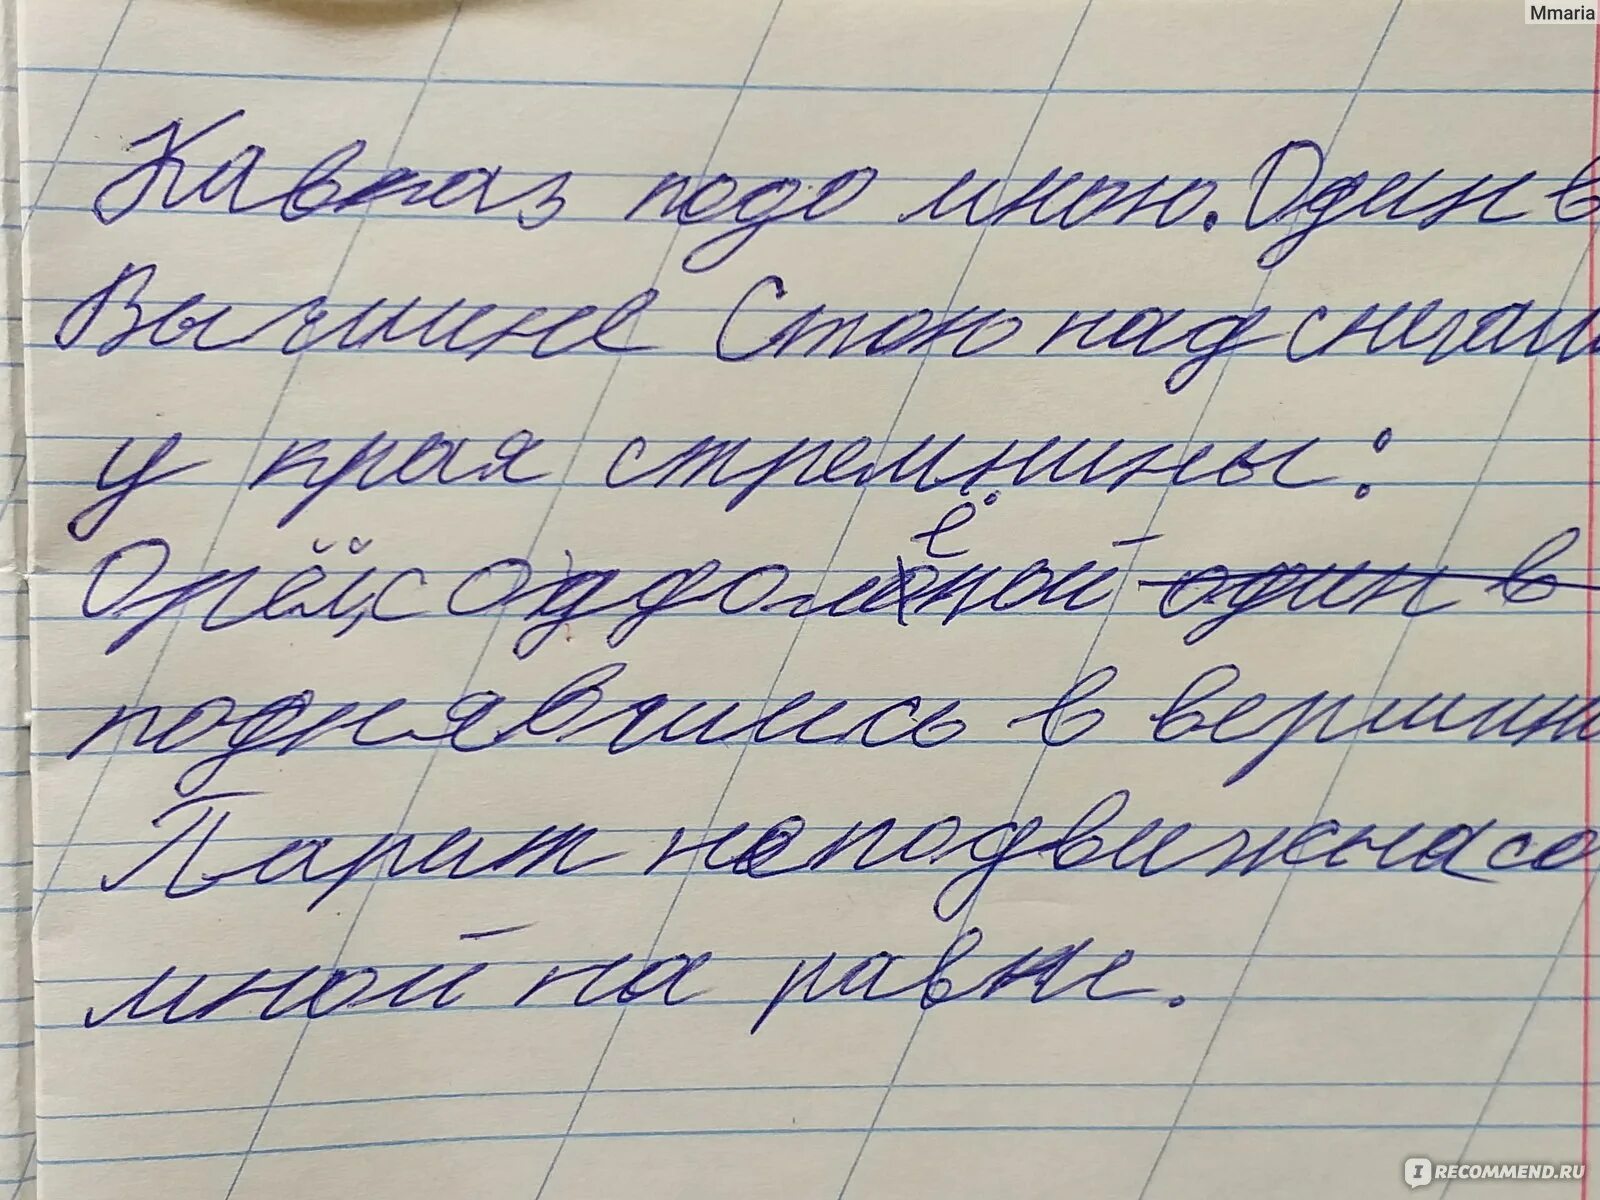 Mmaria
Кавказ подо мною. Один в
Вычшине Стою над снегам
у края стремнины:
Орёл, с оддолённой один в
поднявчись в вершин
Парит неподвижна со
мной на равне.
IRECOMMEND.RU